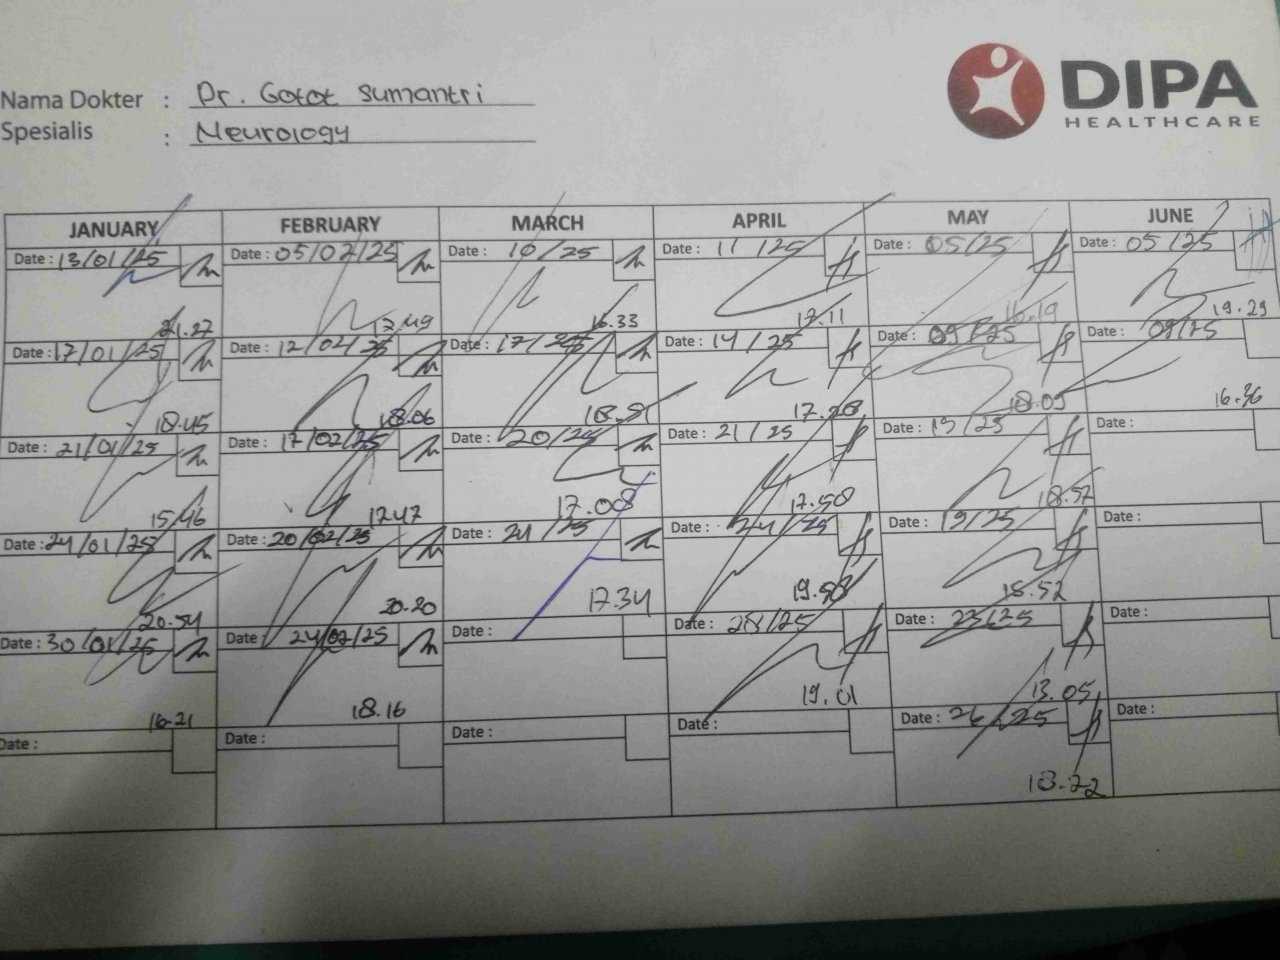 Nama Dokter : Dr. Gotot Sumantri
Spesialis : Neurology
DIPA
HEALTHCARE
JANUARY FEBRUARY MARCH APRIL MAY JUNE
Date : 13/01/25 Date : 05/02/25 Date : 10/25 Date : 11/25 Date : 05/25 Date : 05/25
21.27 17.49 16.33 17.11 16.19 19.29
Date : 17/01/25 Date : 12/02/25 Date : 17/25 Date : 14/25 Date : 09/25 Date : 09/25
18.45 18.06 18.51 17.28 18.05 16.36
Date : 21/01/25 Date : 17/02/25 Date : 20/25 Date : 21/25 Date : 15/25 Date :
15.46 17.47 17.08 17.58 18.57
Date : 24/01/25 Date : 20/02/25 Date : 24/25 Date : 24/25 Date : 19/25 Date :
20.54 20.20 17.34 19.58 18.52
Date : 30/01/25 Date 24/02/25 Date : Date : 28/25 Date : 23/25 Date :
16.21 18.16 19.01 13.05
Date : Date : Date : Date : Date : 26/25 Date :
18.22